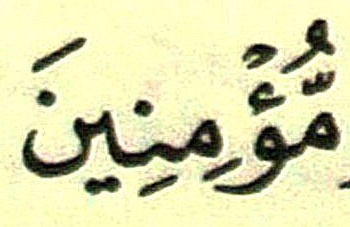 مُّؤْمِنِينَ